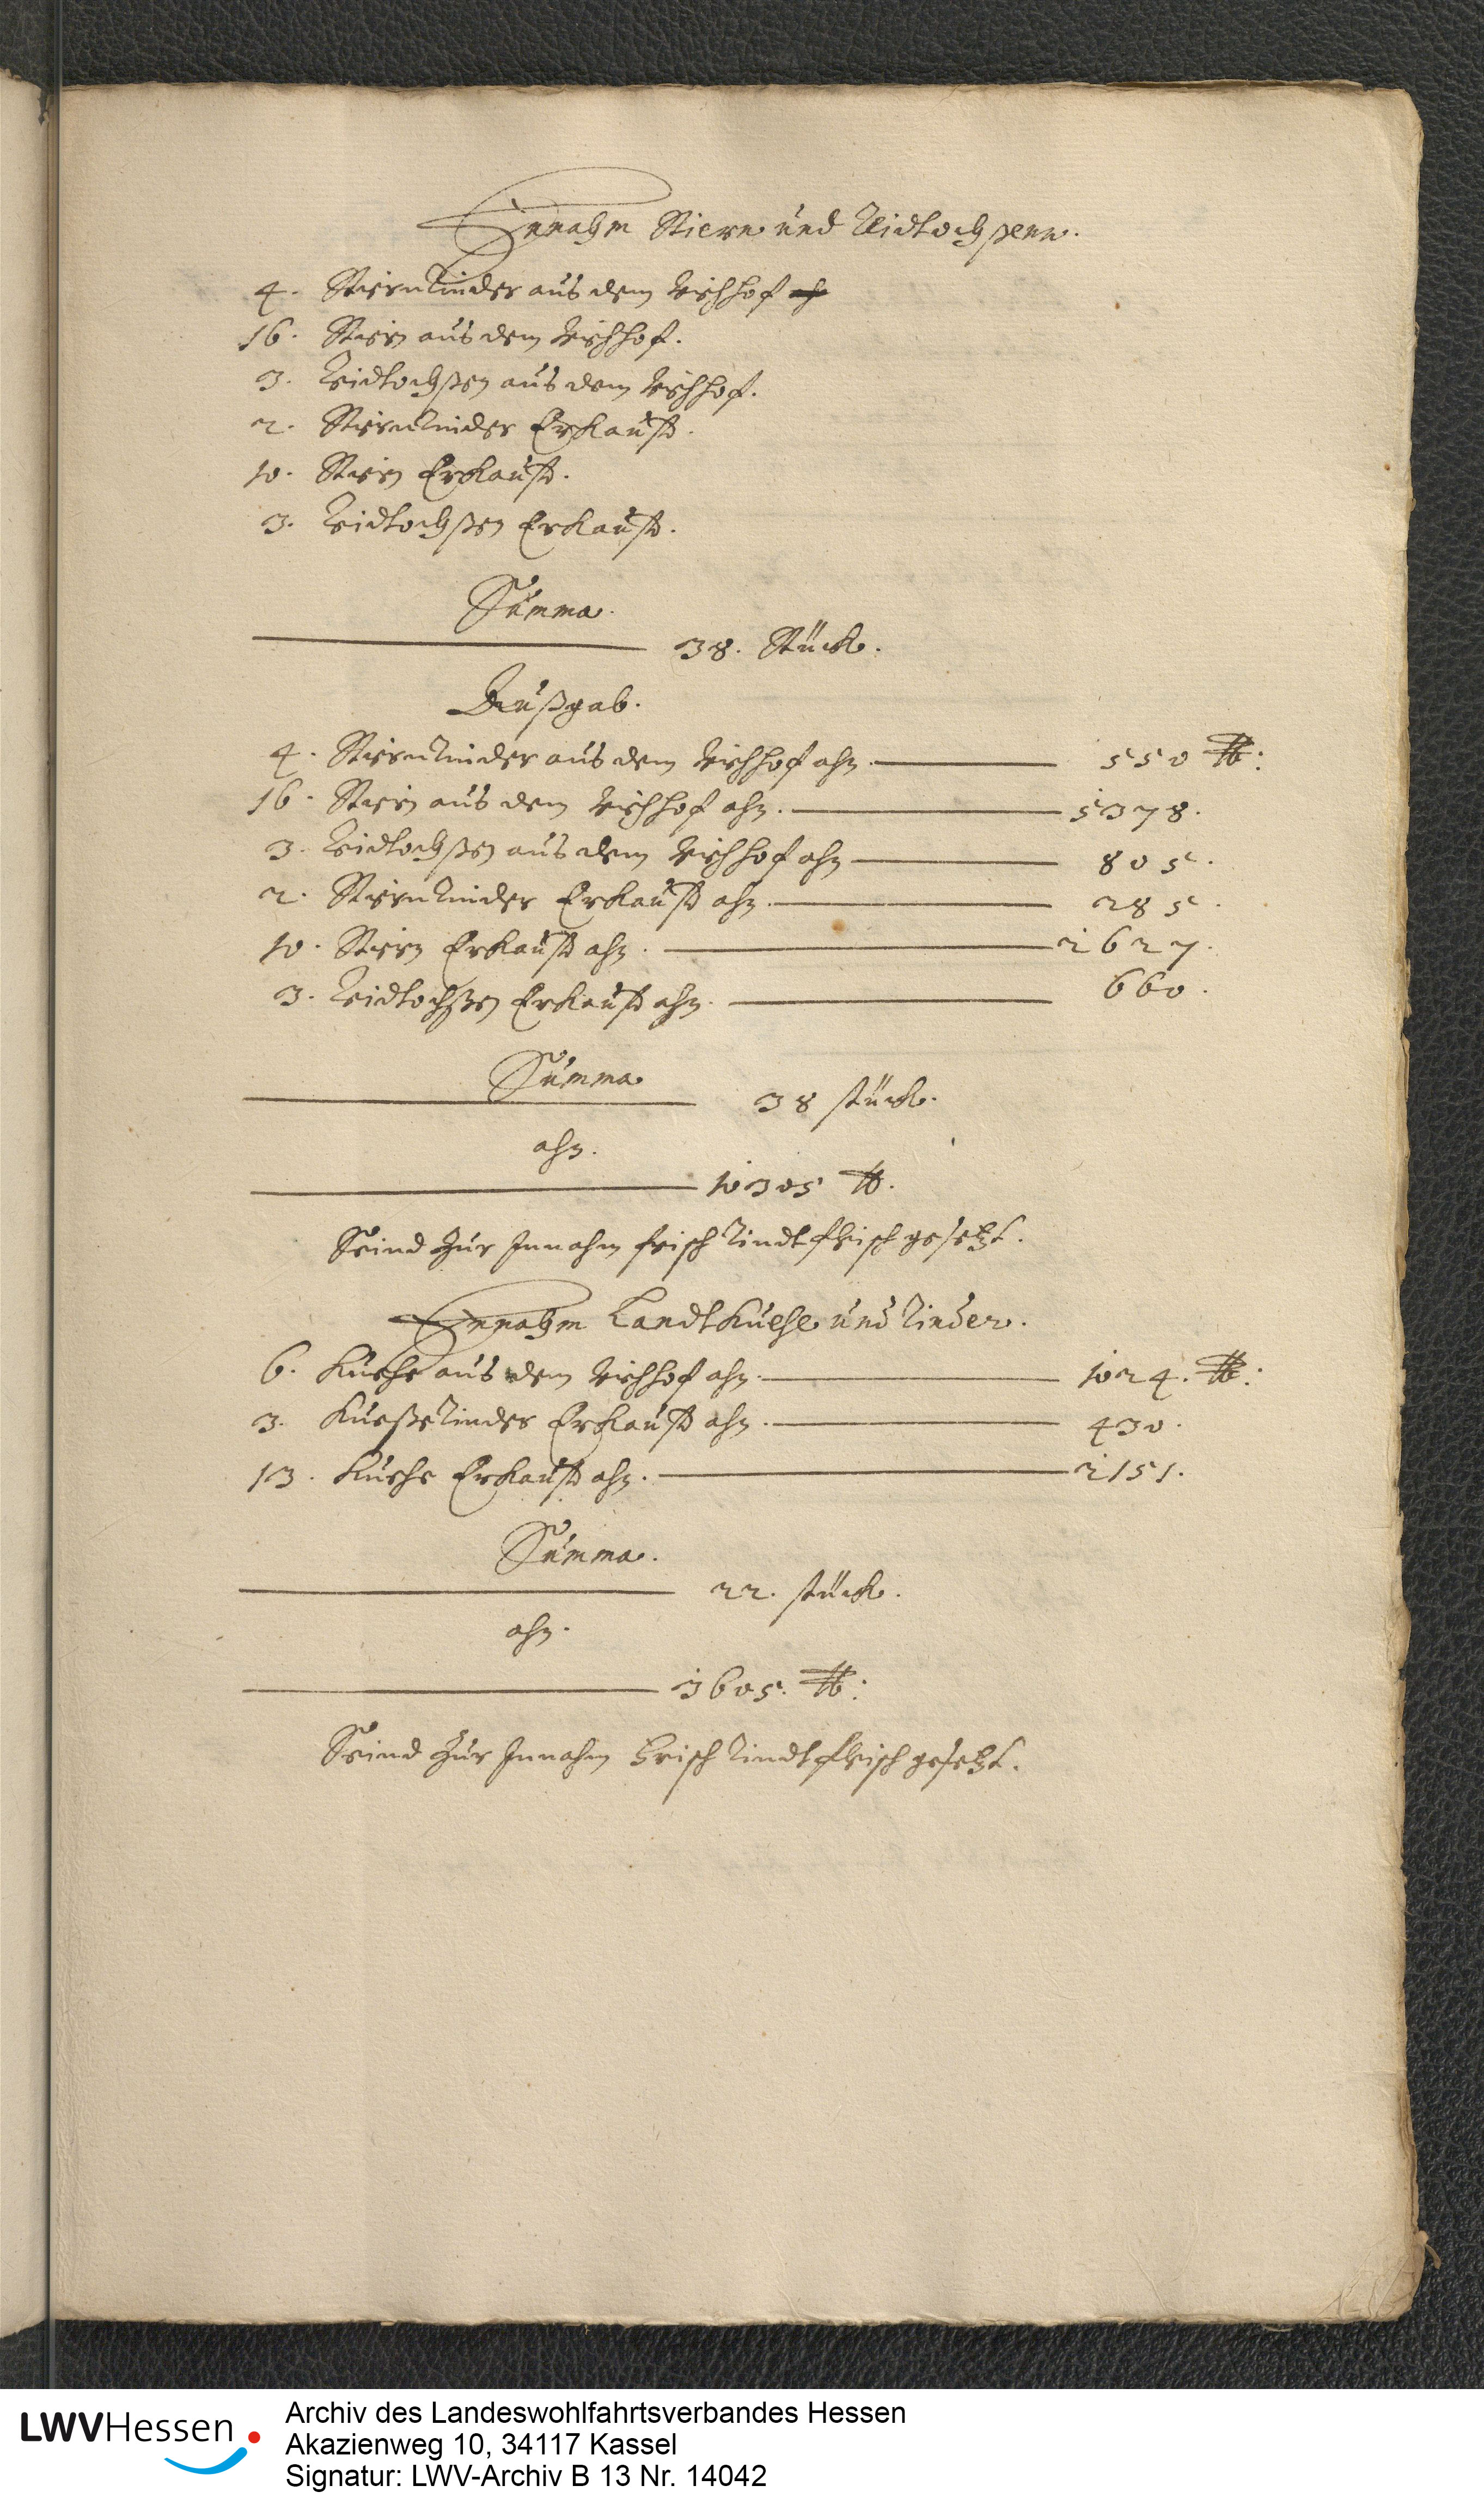 Innahm Stiern und Reidtochssenn.
4. Stiernrinder aus dem Viehhof ah
16. Stiern aus dem Viehhof.
3. Reidtochßen aus dem Viehhof.
2. Stiernrinder Erkaufft.
10. Stiern Erkaufft.
3. Reidtochßen Erkaufft.
Summa.
38. Stück.
Außgab.
4. Stiernrinder aus dem Viehhof ahn. 550 ℔:
16. Stiern aus dem Viehhof ahn. 5378.
3. Reidtochßen aus dem Viehhof ahn 805.
2. Stiernrinder Erkaufft ahn. 285.
10. Stiern Erkaufft ahn. 2627.
3. Reidtochßen Erkaufft ahn. 660.
Summa
38 stück.
ahn.
10305 ℔.
Seind zur Innahm frisch Rindtfleisch gesetzt.
Innahm Landtkuehe und Rinder.
6. Kuehe aus dem Viehhof ahn. 1024. ℔:
3. Kueherinder Erkaufft ahn. 430.
13. Kuehe Erkaufft ahn. 2151.
Summa.
22. stück.
ahn.
3605. ℔:
Seind zur Innahm Frisch Rindtfleisch gesetzt.
LWVHessen
Archiv des Landeswohlfahrtsverbandes Hessen
Akazienweg 10, 34117 Kassel
Signatur: LWV-Archiv B 13 Nr. 14042